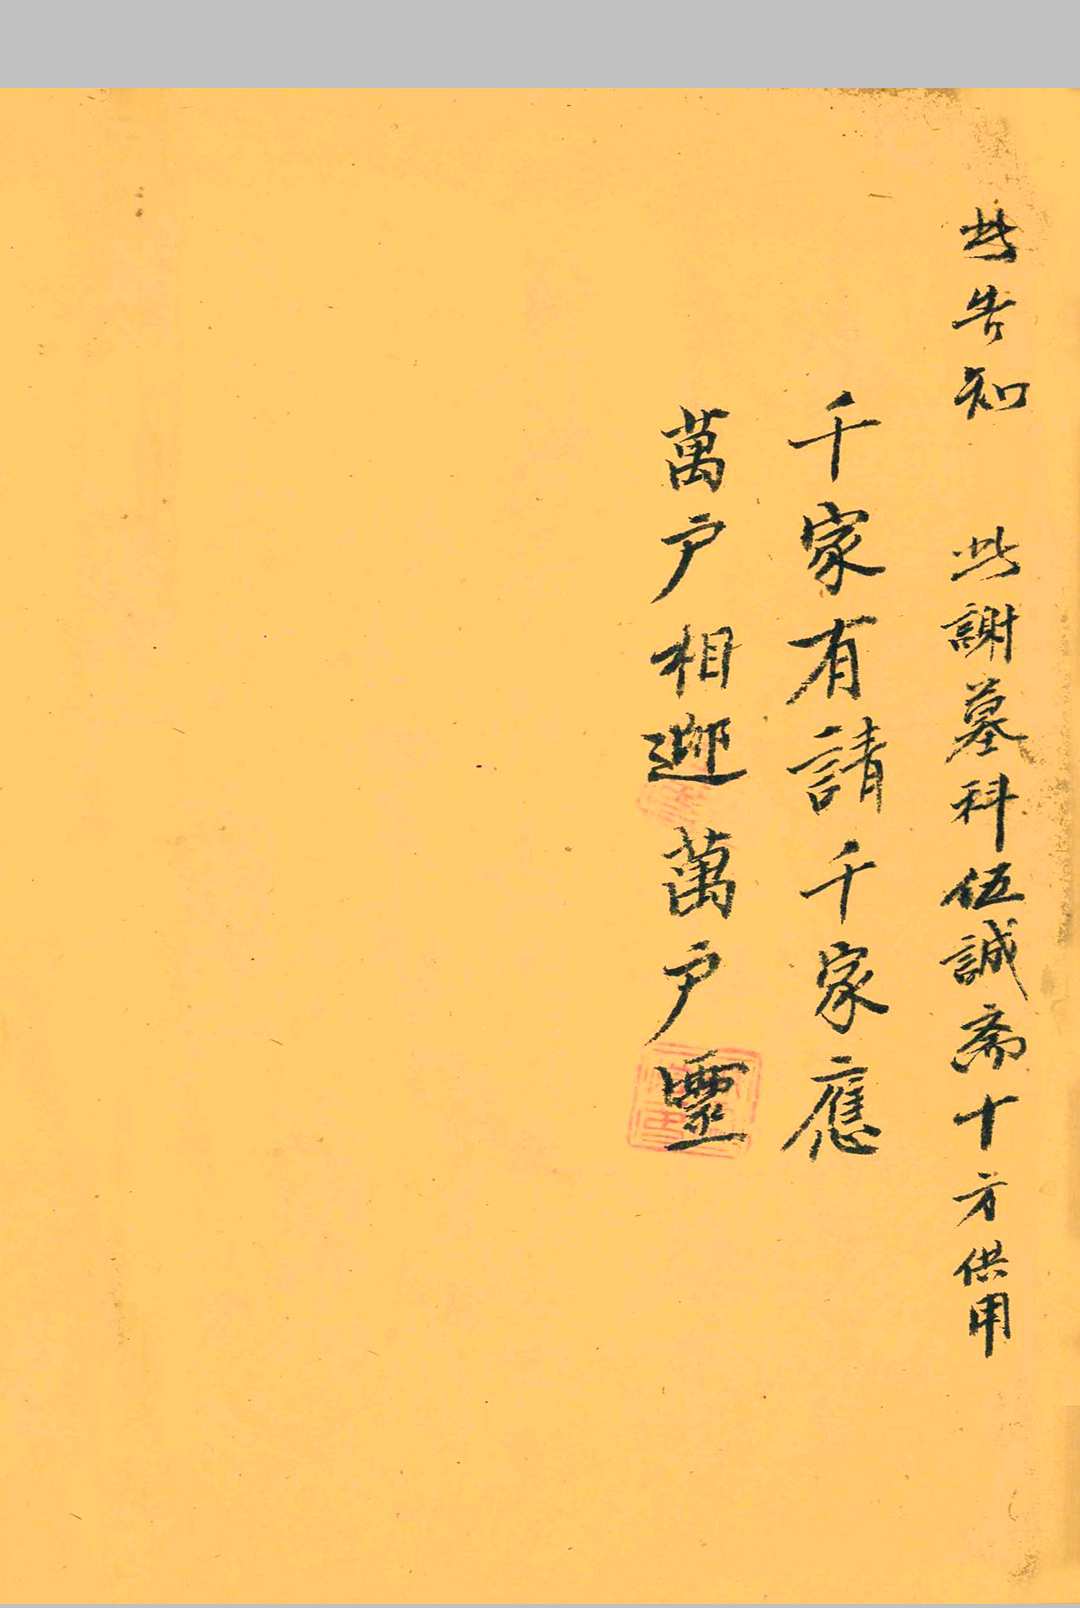 此告知 此謝墓科伍誠斋十方供用
千家有請千家應
萬户相迎萬户靈